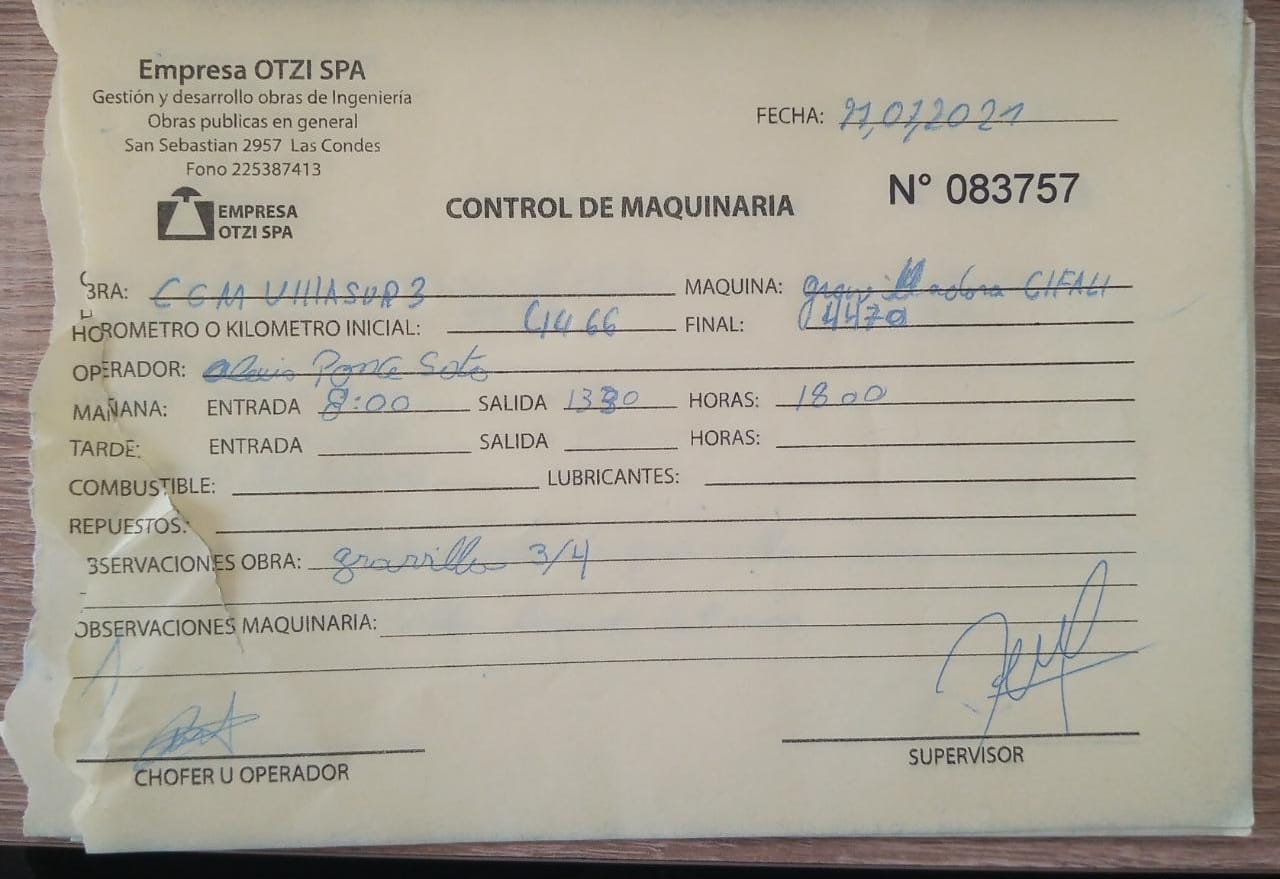 Empresa OTZI SPA
Gestión y desarrollo obras de Ingeniería
Obras publicas en general
San Sebastian 2957 Las Condes
Fono 225387413
EMPRESA
OTZI SPA
FECHA: 21,07,2021
CONTROL DE MAQUINARIA
N° 083757
BRA: CGM VIllASUR 3 MAQUINA: CIFALI
HOROMETRO O KILOMETRO INICIAL: 4466 FINAL: 4470
OPERADOR: Alexis Ponce Soto
MAÑANA: ENTRADA 8:00 SALIDA 1330 HORAS: 18 00
TARDE: ENTRADA SALIDA HORAS:
COMBUSTIBLE: LUBRICANTES:
REPUESTOS:
BSERVACIONES OBRA: gravilla 3/4
OBSERVACIONES MAQUINARIA:
CHOFER U OPERADOR
SUPERVISOR